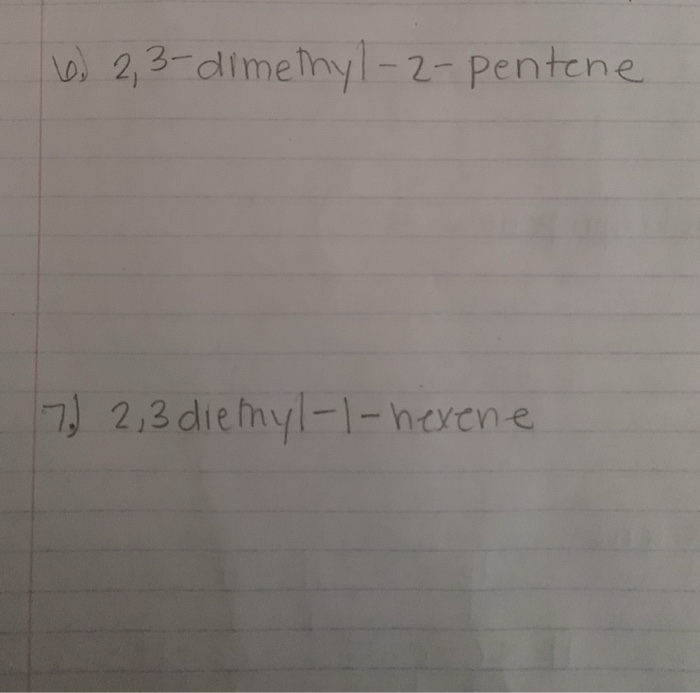 6.) 2,3-dimethyl-2-pentene
7.) 2,3 diethyl-1-hexene